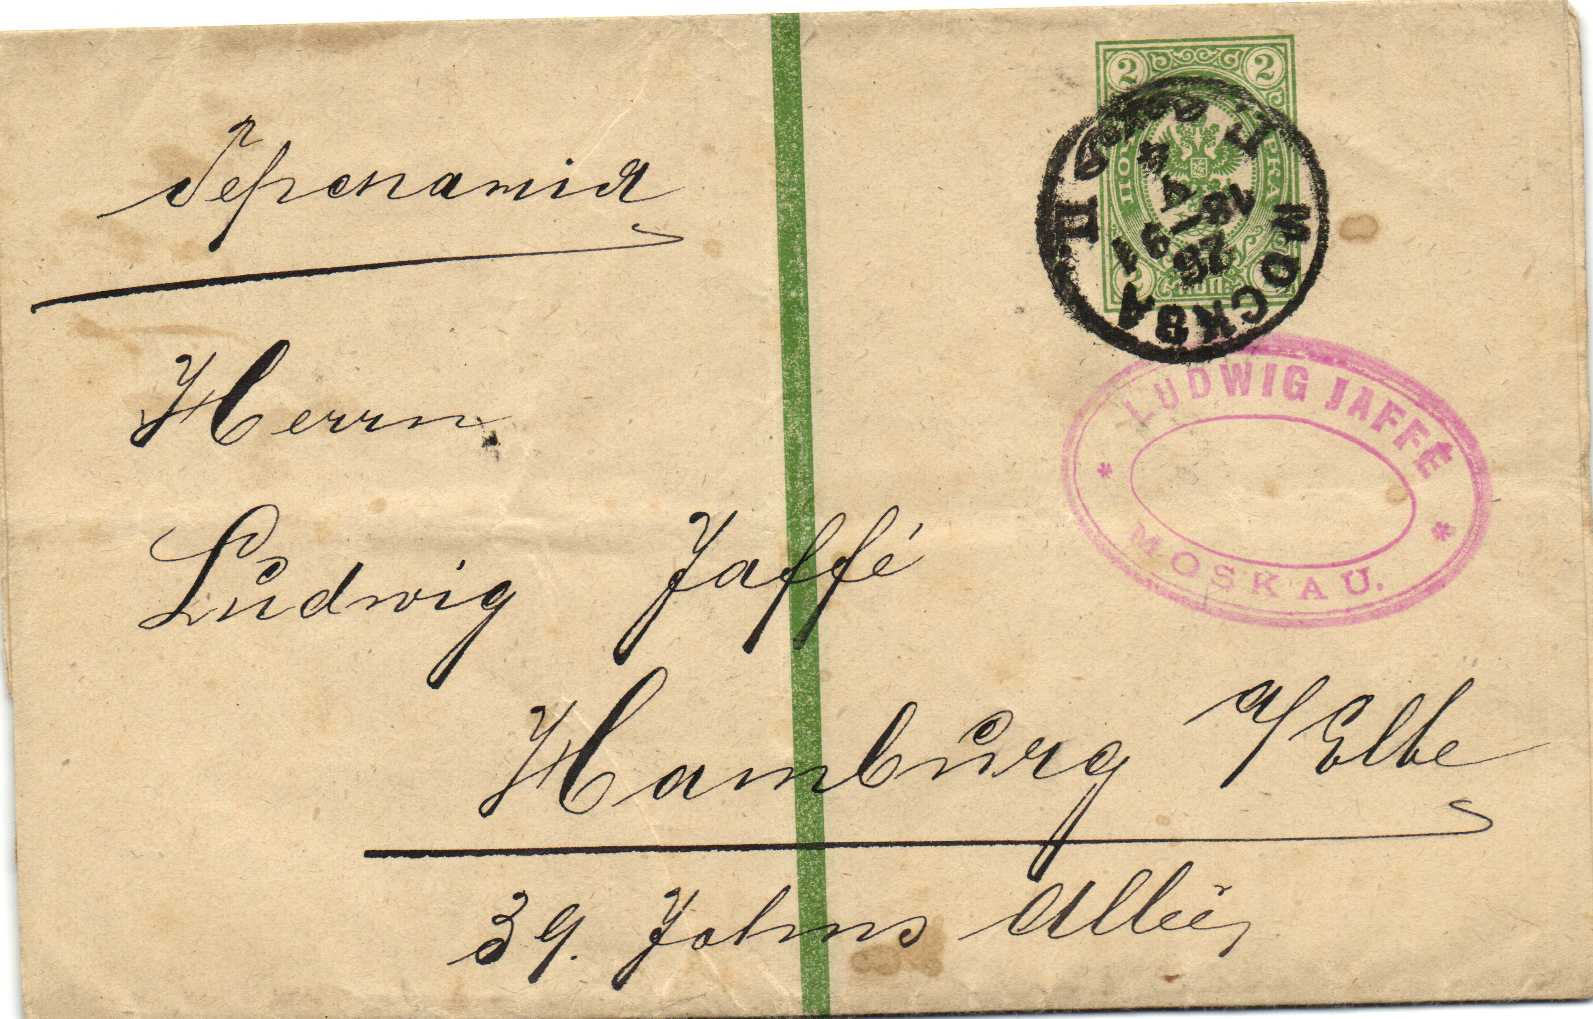 Германія
Herrn
Ludwig Jaffé
Hamburg a/Elbe
39. Johns Allée,
2 2
МОСКВА
26
18 91
LUDWIG JAFFÉ
MOSKAU.